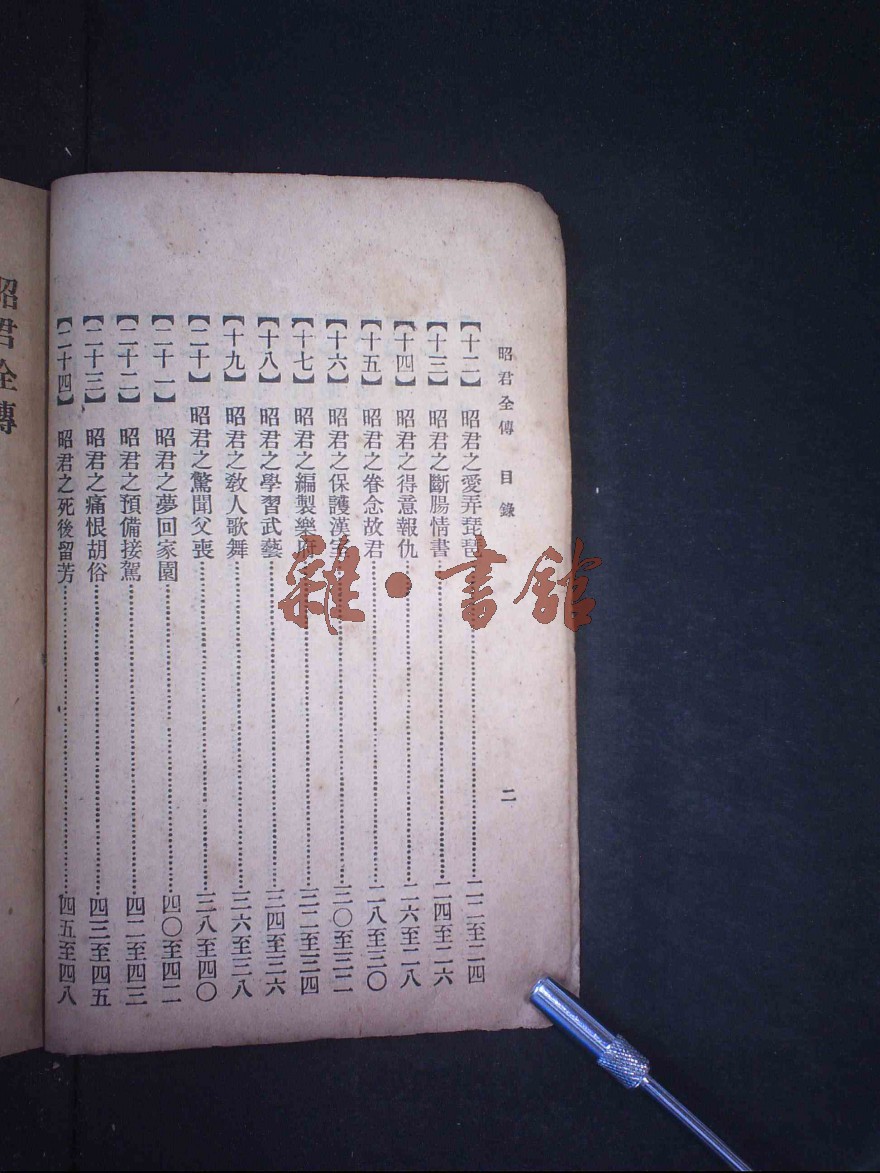 昭君全傳 目錄 二
【十二】 昭君之愛弄琵琶 二二至二四
【十三】 昭君之斷腸情書 二四至二六
【十四】 昭君之得意報仇 二六至二八
【十五】 昭君之眷念故君 二八至三〇
【十六】 昭君之保護漢 三〇至三二
【十七】 昭君之編製樂府 三二至三四
【十八】 昭君之學習武藝 三四至三六
【十九】 昭君之敎人歌舞 三六至三八
【二十】 昭君之驚聞父喪 三八至四〇
【二十一】 昭君之夢回家園 四〇至四二
【二十二】 昭君之預備接駕 四二至四三
【二十三】 昭君之痛恨胡俗 四三至四五
【二十四】 昭君之死後留芳 四五至四八
昭君全傳
雜·書館